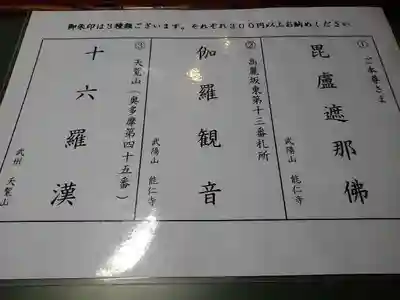 御朱印は3種類ございます。それぞれ300円以上お納めください
① ご本尊さま
毘盧遮那佛
武陽山 能仁寺
② 高麗坂東第十三番札所
伽羅観音
武陽山 能仁寺
③ 天覧山(奥多摩第四十五番)
十六羅漢
武州 天覧山